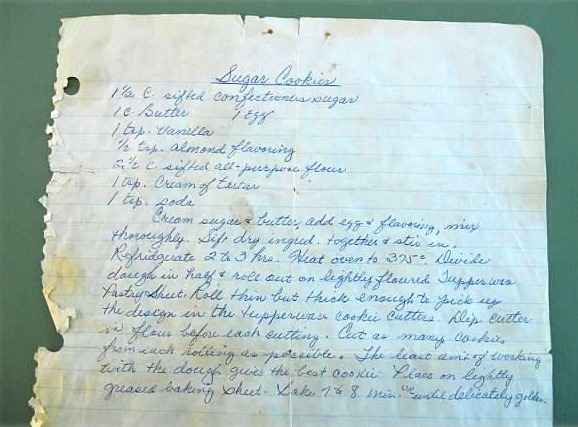 Sugar Cookies
1½ C. sifted confectioners sugar
1 C. Butter 1 Egg
1 tsp. Vanilla
½ tsp. Almond flavoring
2½ C. sifted all-purpose flour
1 tsp. Cream of tartar
1 tsp. soda
Cream sugar & butter, add egg & flavoring, mix
thoroughly. Sift dry ingred. together & stir in.
Refridgerate 2 to 3 hrs. Heat oven to 375°. Divide
dough in half & roll out on lightly floured Tupperware
Pastry Sheet. Roll thin but thick enough to pick up
the design in the Tupperware cookie cutters. Dip cutter
in flour before each cutting. Cut as many cookies
from each rolling as possible. The least amt of working
with the dough gives the best cookie. Place on lightly
greased baking sheet. Bake 7 to 8 min. or until delicately golden.